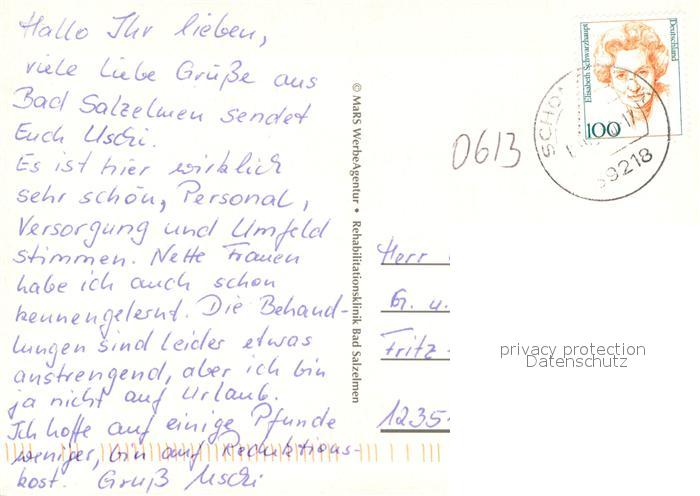 Hallo Ihr lieben,
viele liebe Grüße aus
Bad Salzelmen sendet
Euch Uschi.
Es ist hier wirklich
sehr schön, Personal,
Versorgung und Umfeld
stimmen. Nette Frauen
habe ich auch schon
kennengelernt. Die Behand-
lungen sind leider etwas
anstrengend, aber ich bin
ja nicht auf Urlaub.
Ich hoffe auf einige Pfunde
weniger, bin auf Reduktions-
kost. Gruß Uschi
© MaRS WerbeAgentur • Rehabilitationsklinik Bad Salzelmen
0613
Elisabeth Schwarzhaupt
Deutschland
100
SCHÖ
39218
Herr
G. u.
Fritz-
1235
privacy protection
Datenschutz